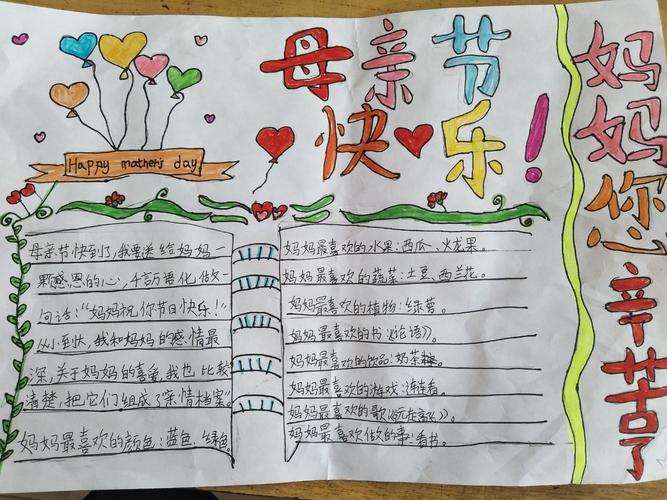 母亲节
快乐！
Happy mother's day
妈妈您辛苦了
母亲节快到了，我要送给妈妈一
颗感恩的心，千言万语化做一
句话：“妈妈祝你节日快乐！”
从小到大，我和妈妈的感情最
深，关于妈妈的喜爱，我也比较
清楚，把它们组成了亲情档案。
妈妈最喜欢的颜色：蓝色、绿色。
妈妈最喜欢的水果：西瓜、火龙果。
妈妈最喜欢的蔬菜：土豆、西兰花。
妈妈最喜欢的植物：绿萝。
妈妈最喜欢的书《论语》。
妈妈最喜欢的饮品：奶茶
妈妈最喜欢的游戏：连连看。
妈妈最喜欢的歌
妈妈最喜欢做的事：看书。